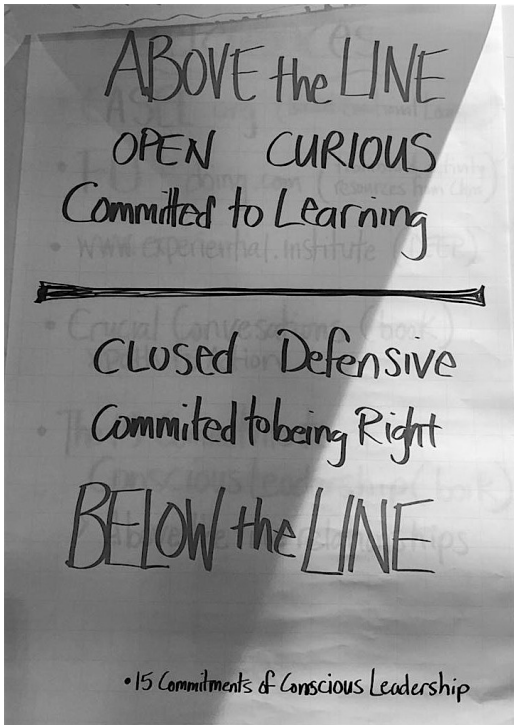 ABOVE the LINE
OPEN CURIOUS
Committed to Learning
CLOSED Defensive
Commited to being Right
BELOW the LINE
• 15 Commitments of Conscious Leadership